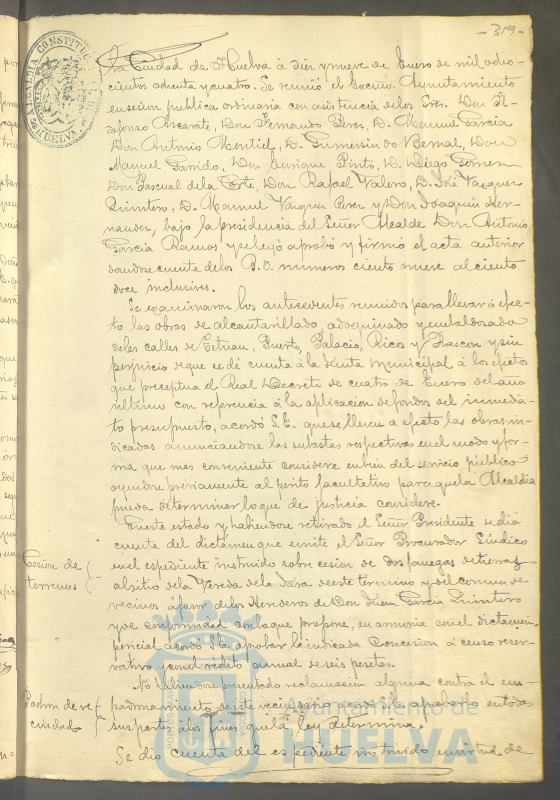 -319-
ALCALDIA CONSTITUCIONAL
HUELVA
la Ciudad de Huelva à diez y nueve de Enero de mil ocho-
cientos ochenta y cuatro. Se reunió el Excmo. Ayuntamiento
en sesion publica ordinaria con asistencia de los Sres. Don Il-
defonso Alcarate, Don Fernando Perez, D. Manuel Garcia
Don Antonio Montiel, D. Gumersindo Bernal, Don
Manuel Garrido, Don Enrique Pinto, D. Diego Gomez
Don Pascual de la Corte, Don Rafael Valero, D. José Vazquez
Quintero, D. Manuel Vazquez Perez y Don Joaquin Her-
nandez, bajo la presidencia del Señor Alcalde Don Antonio
Garcia Ramos y se leyó aprobó y firmó el acta anterior
dandose cuenta de los B. O. numeros ciento nueve al ciento
doce inclusives.
Se examinaron los antecedentes reunidos para llevar á efec-
to las obras de alcantarillado, adoquinado y embaldosado
de las calles de Tetuan, Puerto, Palacio, Ricos y Rascon y sin
perjuicio de que se dé cuenta á la Junta Municipal á los efectos
que preceptua el Real Decreto de cuatro de Enero del año
último con referencia á la aplicacion de fondos del inmedia-
to presupuesto, acordó S.E. que se lleven a efecto las obras in-
dicadas anunciandose las subastas respectivas en el modo y for-
ma que mas conveniente considere en bien del servicio publico
oyendose préviamente al perito facultativo para que la Alcaldia
pueda determinar lo que de justicia considere.
En este estado y habiendose retirado el Señor Presidente se dió
cuenta del dictámen que emite el Señor Procurador Sindico
Cesion de
terrenos
en el espediente instruido sobre cesion de dos fanegas de tierras
al sitio de la Vereda de la Jara de este término y del comun de
vecinos á favor de los Herederos de Don Juan Garcia Quintero
y de conformidad con lo que propone, en armonia con el dictamen
pericial acordó S.E. aprobar la indicada concesion á censo reser-
vativo y con el rédito annual de seis pesetas.
No habiendose presentado reclamacion alguna contra el em-
Padron de ve-
cindad
padronamiento de este vecindario acordó S.E. aprobarlo en todas
sus partes á los fines que la ley determina.
Se dió cuenta del espediente instruido en virtud de
Ayuntamiento de
HUELVA